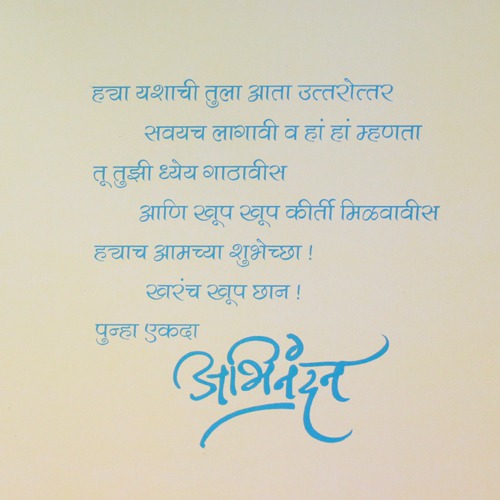 ह्या यशाची तुला आता उत्तरोत्तर
सवयच लागावी व हां हां म्हणता
तू तुझी ध्येय गाठावीस
आणि खूप खूप कीर्ती मिळवावीस
ह्याच आमच्या शुभेच्छा !
खरंच खूप छान !
पुन्हा एकदा
अभिनंदन